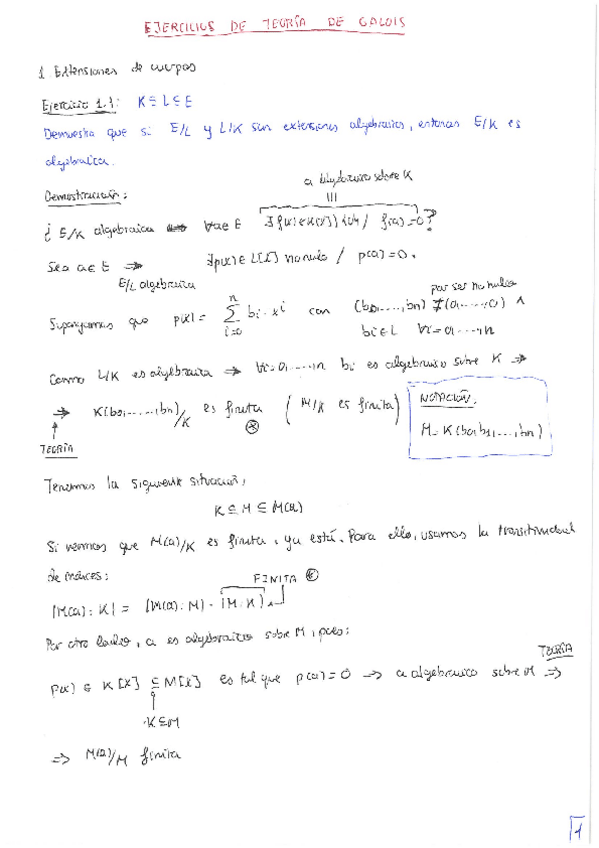 EJERCICIOS DE TEORÍA DE GALOIS
1 Extensiones de cuerpos
Ejercicio 1.1: K ⊆ L ⊆ E
Demuestra que si E/L y L/K son extensiones algebraicas, entonces E/K es
algebraica.
a algebraico sobre K
Demostración:
¿ E/K algebraica ⟺ ∀a∈E ∃f(x)∈K[x]\{0} / f(a)=0?
Sea a∈E ⟹ ∃p(x)∈L[x] no nulo / p(a)=0.
E/L algebraica
por ser no nulo
Supongamos que p(x) = ∑_{i=0}^{n} bi·x^i con (b0,....,bn) ≠ (0,....,0) ∧
bi∈L ∀i=0,....,n
Como L/K es algebraica ⟹ ∀i=0,....,n bi es algebraico sobre K ⟹
⟹ K(b0,....,bn)/K es finita (M/K es finita)
TEORÍA
NOTACIÓN.
M=K(b0,b1,....,bn)
Tenemos la siguiente situación:
K ⊆ M ⊆ M(a)
Si vemos que M(a)/K es finita, ya está. Para ello, usamos la transitividad
de índices:
FINITA
|M(a):K| = |M(a):M|·|M:K|
Por otro lado, a es algebraico sobre M, pues:
p(x) ∈ K[x] ⊆ M[x] es tal que p(a)=0 → a algebraico sobre M ⟹
TEORÍA
K⊆M
⟹ M(a)/M finita
1